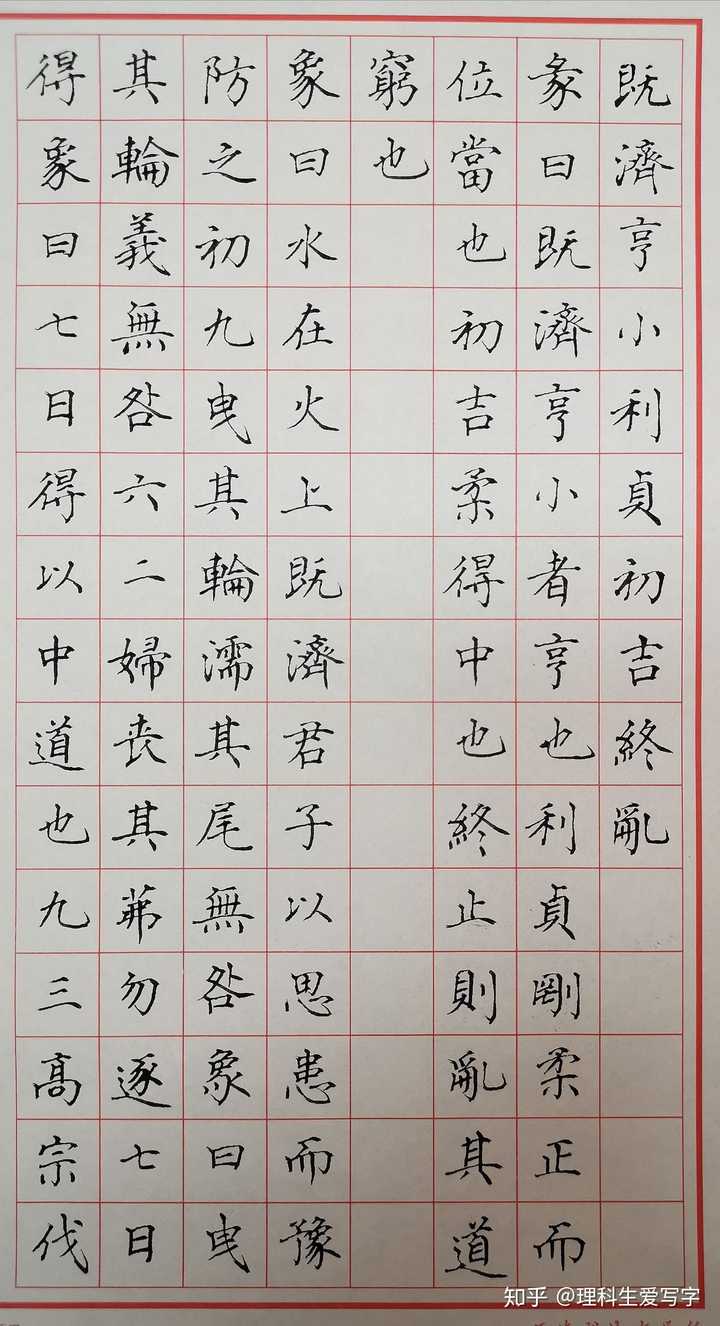 既濟亨小利貞初吉終亂
彖曰既濟亨小者亨也利貞剛柔正而
位當也初吉柔得中也終止則亂其道
窮也
象曰水在火上既濟君子以思患而豫
防之初九曳其輪濡其尾無咎象曰曳
其輪義無咎六二婦喪其茀勿逐七日
得象曰七日得以中道也九三高宗伐
知乎 @理科生爱写字